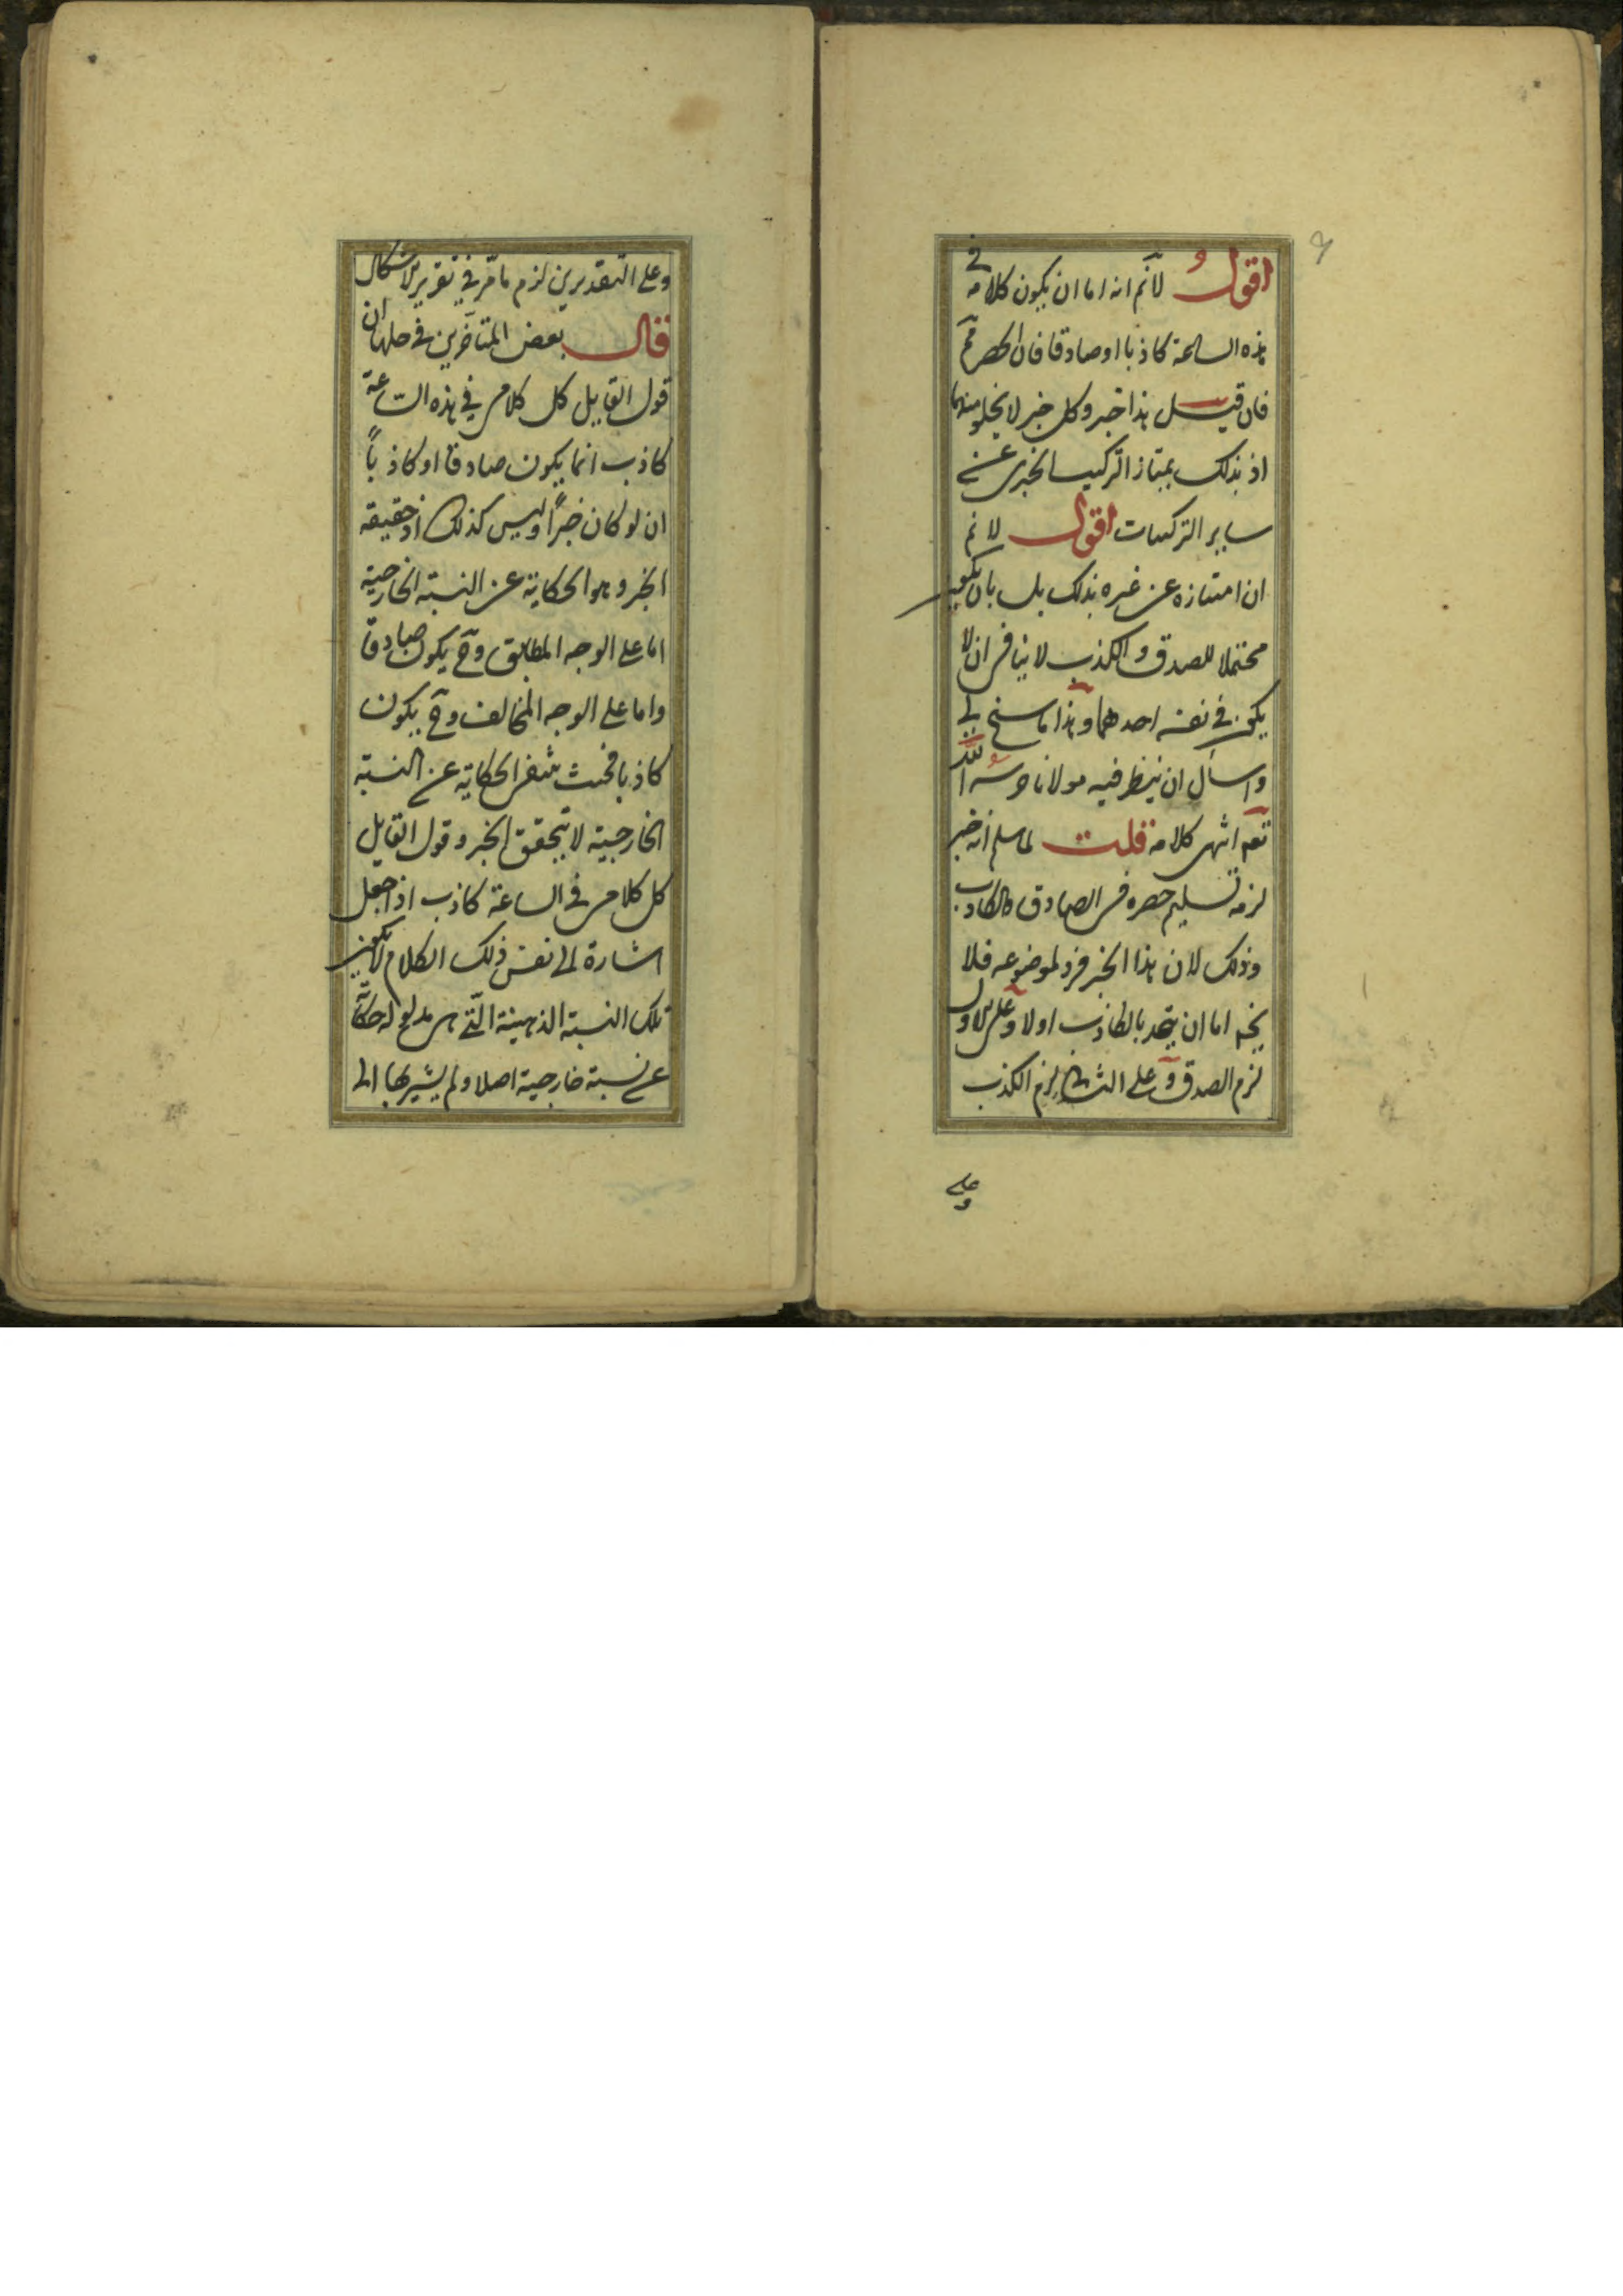 اقول لا نم انه اما ان يكون كلامه في
هذه الساعة كاذبا او صادقا فان الحصر مم
فان قيل هذا خبر وكل خبر لا يخلو منهما
اذ بذلك يمتاز التركيب الخبرى عن
ساير التركيبات اقول لا نم
ان امتيازه عن غيره بذلك بل بان يكون
محتملا للصدق والكذب لا ينافى ان لا
يكون في نفسه احدهما وهذا ما سنح لى
واسأل ان ينظر فيه مولانا حرسه الله
تعه انتهى كلامه قلت لما سلم انه خبر
لزمه تسليم حصره فى الصادق والكاذب
وذلك لان هذا الخبر فرد لموضوعه فلا
يخ اما ان يتحد بالكاذب اولا وعلى الاول
لزم الصدق وعلى الثانى لزم الكذب
وعلى
وعلى التقديرين لزم ما مر في تقرير الاشكال
قال بعض المتأخرين في حلها ان
قول القايل كل كلامى في هذه الساعة
كاذب انما يكون صادقا او كاذباً
ان لو كان خبراً وليس كذلك اذ حقيقه
الخبر وهو الحكاية عن النسبة الخارجية
اما على الوجه المطابق وح يكون صادقا
واما على الوجه المخالف وح يكون
كاذبا فحيث تنتفى الحكاية عن النسبة
الخارجية لا يتحقق الخبر وقول القايل
كل كلامى في الساعة كاذب اذا جعل
اشارة الى نفس ذلك الكلام لا يكون
تلك النسبة الذهنية التى هى مدلوله حكاية
عن نسبة خارجية اصلا ولم يشير بها الى